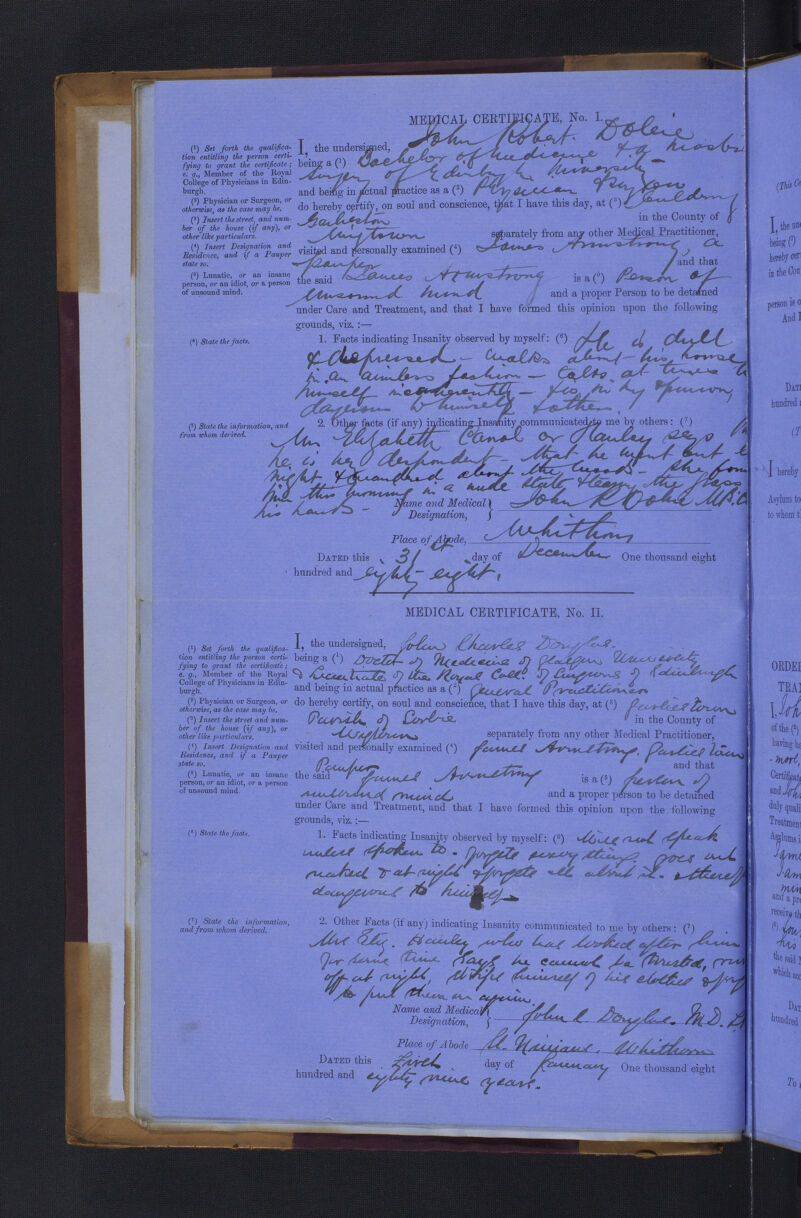 MEDICAL CERTIFICATE, No. I.
(¹) Set forth the qualifica-
tion entitling the person certi-
fying to grant the certificate;
e. g., Member of the Royal
College of Physicians in Edin-
burgh.
(²) Physician or Surgeon, or
otherwise, as the case may be.
(³) Insert the street, and num-
ber of the house (if any), or
other like particulars.
(⁴) Insert Designation and
Residence, and if a Pauper
state so.
(⁵) Lunatic, or an insane
person, or an idiot, or a person
of unsound mind.
I, the undersigned, John Robert
being a (¹) Bachelor of medicine & a
Surgery of Edinburgh University
and being in actual practice as a (²) Physician & Surgeon
do hereby certify, on soul and conscience, that I have this day, at (³)
Garlieston in the County of
Wigtown separately from any other Medical Practitioner,
visited and personally examined (⁴) James Armstrong, a
Pauper and that
the said James Armstrong is a (⁵) Person of
Unsound mind and a proper Person to be detained
under Care and Treatment, and that I have formed this opinion upon the following
grounds, viz. :—
(⁶) State the facts.
1. Facts indicating Insanity observed by myself: (⁶) He is dull
& depressed - walks about his house
in an aimless fashion - talks at times to
himself incoherently - He is in my opinion,
dangerous to himself & others
(⁷) State the information, and
from whom derived.
2. Other facts (if any) indicating Insanity communicated to me by others: (⁷)
Mrs Elizabeth or Hanlay says
he is very despondent - that he went out
night & wandered about the woods - She
him this morning in a nude state & the grass
his hands -
Name and Medical
Designation, John R M.B.C
Place of Abode, Whithorn
DATED this 31st day of December One thousand eight
hundred and eighty-eight.
MEDICAL CERTIFICATE, No. II.
(¹) Set forth the qualifica-
tion entitling the person certi-
fying to grant the certificate;
e. g., Member of the Royal
College of Physicians in Edin-
burgh.
(²) Physician or Surgeon, or
otherwise, as the case may be.
(³) Insert the street and num-
ber of the house (if any), or
other like particulars.
(⁴) Insert Designation and
Residence, and if a Pauper
state so.
(⁵) Lunatic, or an insane
person, or an idiot, or a person
of unsound mind.
I, the undersigned, John Charles Douglas.
being a (¹) Doctor of Medicine of Glasgow University
& Licentiate of the Royal Coll: of Surgeons of Edinburgh
and being in actual practice as a (²) General Practitioner
do hereby certify, on soul and conscience, that I have this day, at (³) Garliestown
Parish of Sorbie in the County of
Wigtown separately from any other Medical Practitioner,
visited and personally examined (⁴) James Armstrong, Garliestown
Pauper and that
the said James Armstrong is a (⁵) person of
unsound mind and a proper person to be detained
under Care and Treatment, and that I have formed this opinion upon the following
grounds, viz. :—
(⁶) State the facts.
1. Facts indicating Insanity observed by myself: (⁶) Will not speak
unless spoken to - forgets every thing, goes out
naked & at night & forgets all about it -
dangerous to himself -
(⁷) State the information,
and from whom derived.
2. Other Facts (if any) indicating Insanity communicated to me by others: (⁷)
Mrs Eliz. Hanley who has looked after him
for some time says he cannot be trusted,
off at night, strips himself of his clothes &
to put them on again.
Name and Medical
Designation, John C. Douglas. M.D.
Place of Abode St. Ninians, Whithorn
DATED this First day of January One thousand eight
hundred and eighty nine years.
I, the un
being (¹)
hereby cer
in the Cou
person is o
And I
DAT
hundred a
I hereby
Asylum to
to whom t
ORDE
TRA
I, Joh
of the (¹)
having h
Certificat
and Joh
duly quali
Treatment
Asylums i
and a pro
receive th
his
the said
which acc
DAT
hundred
To